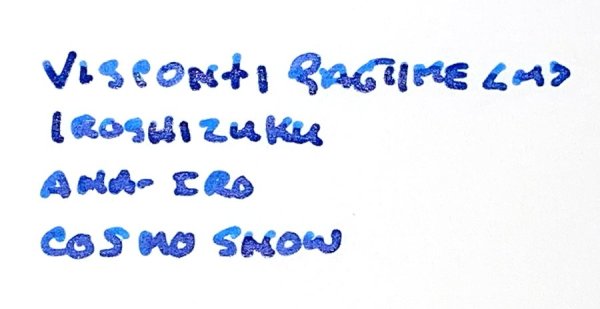 VISCONTI RAGTIME <M>
IROSHIZUKU
AMA-IRO
COSMO SNOW